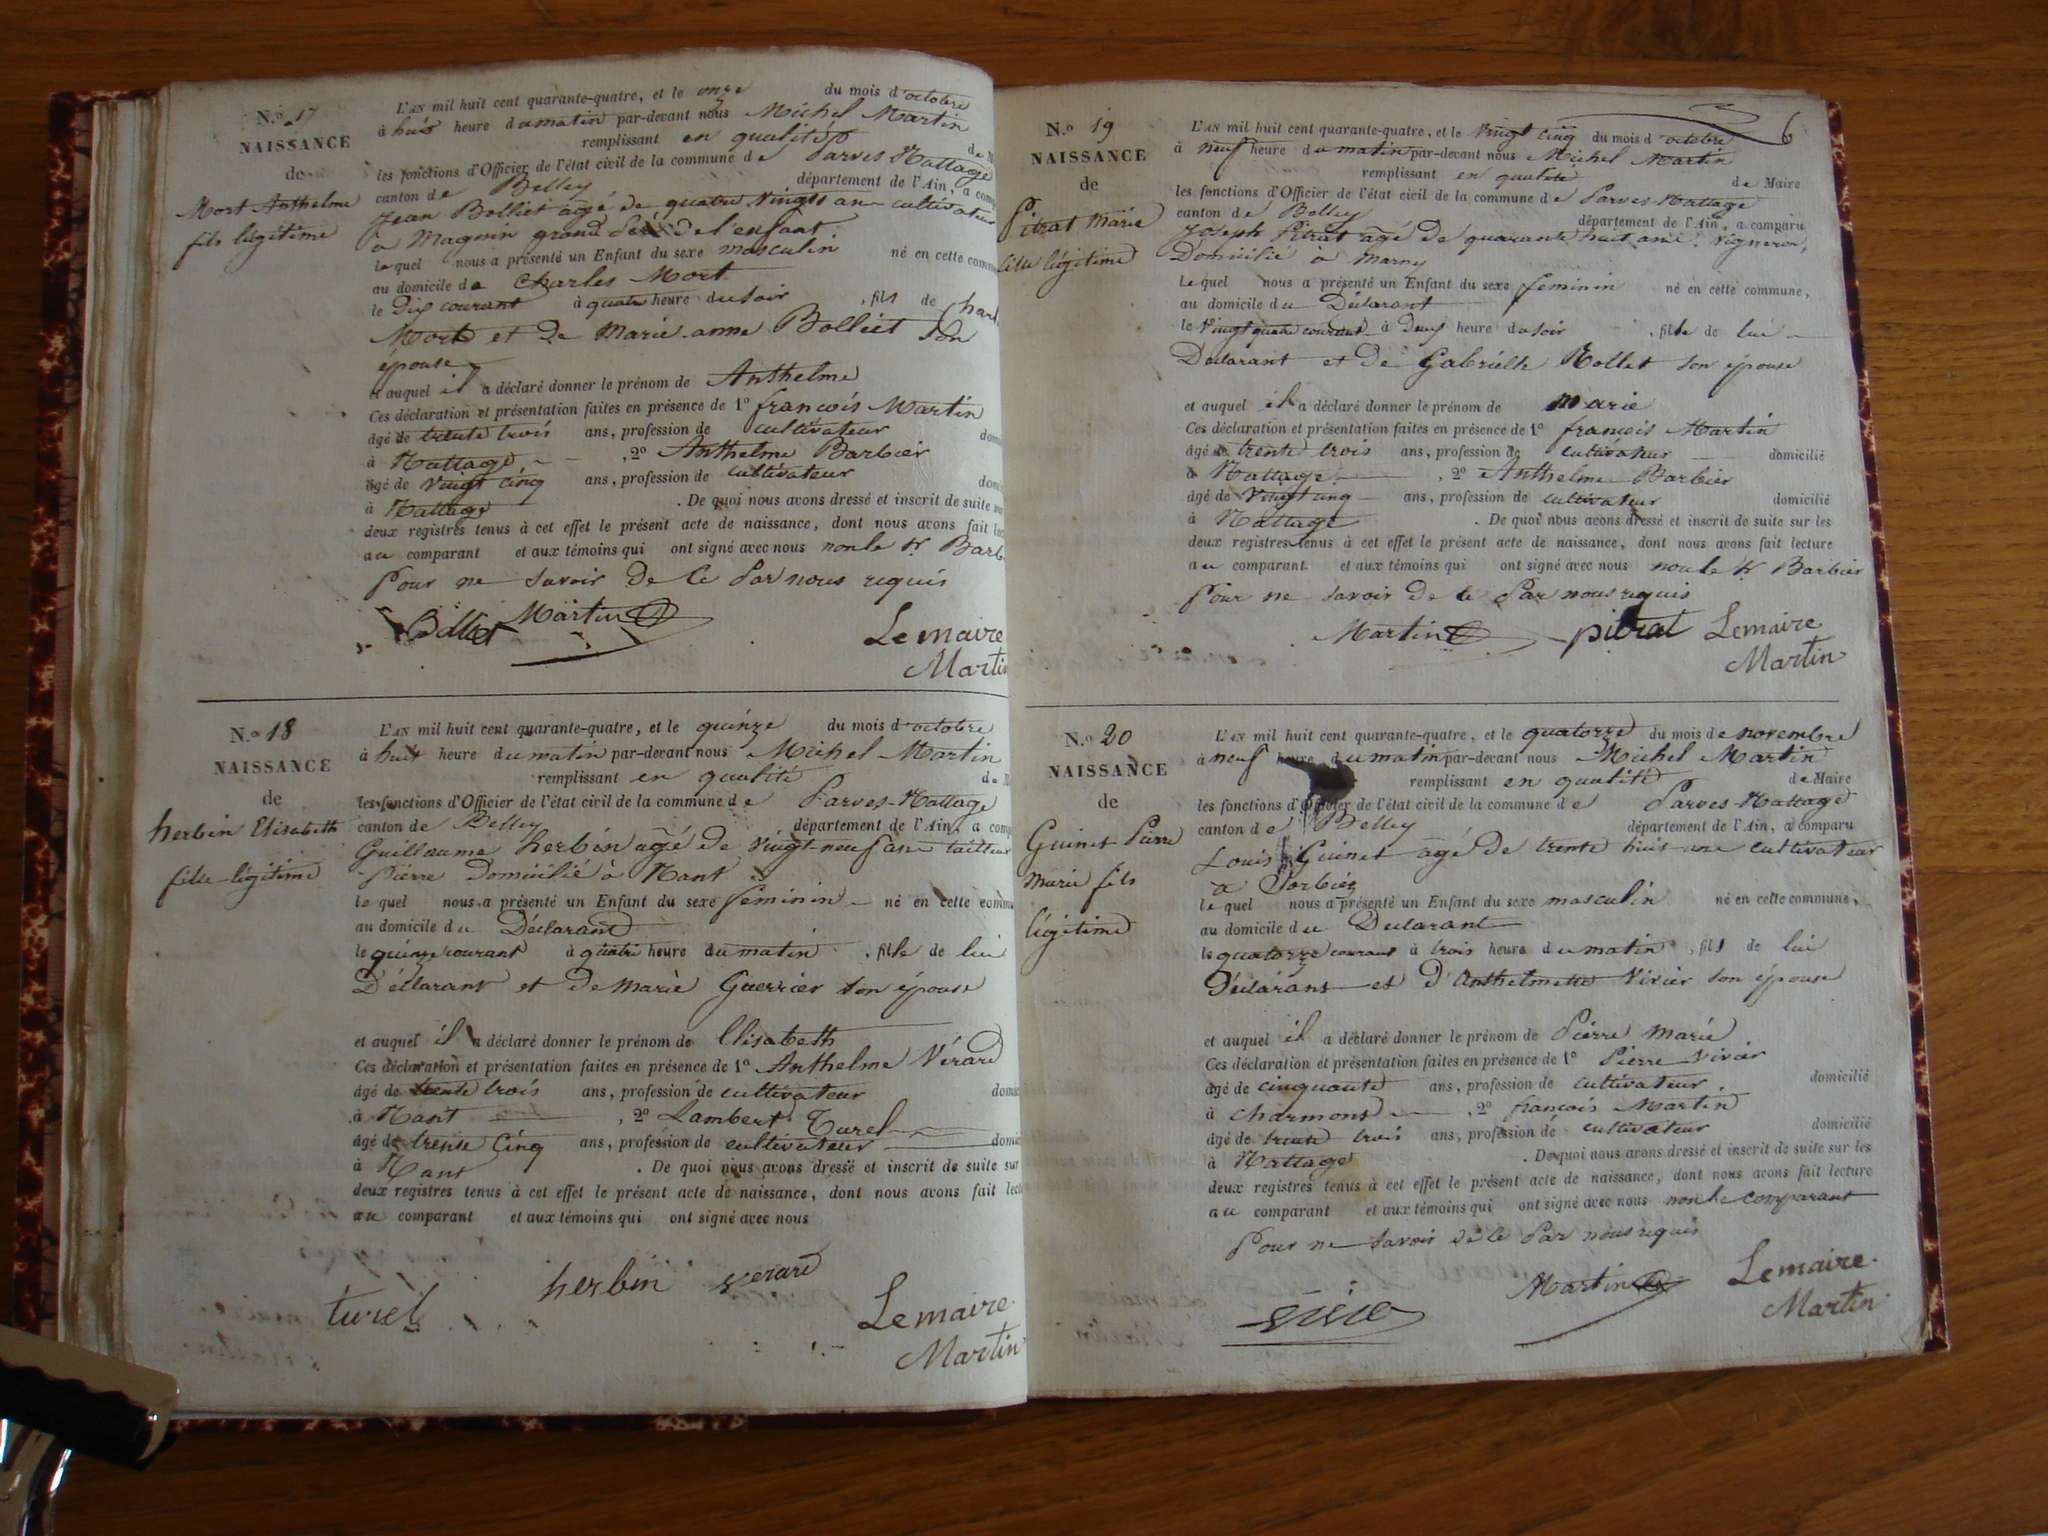 N.o 17
NAISSANCE
de
Mort Anthelme
fils légitime
L'AN mil huit cent quarante-quatre, et le onze du mois d'octobre
à huit heure du matin par-devant nous Michel Martin
remplissant en qualité de
les fonctions d'Officier de l'état civil de la commune de Parves-Nattage
canton de Belley département de l'Ain, a comp
Jean Bolliet agé de quatre vingts ans cultivateur
a Magnin grand Père de l'enfant.
lequel nous a présenté un Enfant du sexe masculin né en cette comm
au domicile de Charles Mort
le Dix courant à quatre heure du soir , fils de Charl
Mort et de Marie-anne Bolliet son
épouse
et auquel il a déclaré donner le prénom de Anthelme
Ces déclaration et présentation faites en présence de 1o francois Martin
âgé de trente trois ans, profession de cultivateur
à Nattage , 2o Anthelme Barbier
âgé de vingt cinq ans, profession de cultivateur
à Nattage . De quoi nous avons dressé et inscrit de suite sur
deux registres tenus à cet effet le présent acte de naissance, dont nous avons fait lec
au comparant et aux témoins qui ont signé avec nous non le Sr Barb
Pour ne savoir de ce Par nous requis
Bolliet Martin
Le maire
Martin
N.o 18
NAISSANCE
de
herbin Elisabeth
fille légitime
L'AN mil huit cent quarante-quatre, et le quinze du mois d'octobre
à huit heure du matin par-devant nous Michel Martin
remplissant en qualité de M
les fonctions d'Officier de l'état civil de la commune de Parves-Nattage
canton de Belley département de l'Ain, a comp
Guillaume herbin agé de vingt neuf ans tailleur
Pierre Domicilié à Nant
lequel nous a présenté un Enfant du sexe féminin né en cette commu
au domicile du Déclarant
le quinze courant à quatre heure du matin , fille de lui
Déclarant et de marie Guerrier son épouse
et auquel il a déclaré donner le prénom de Elisabeth
Ces déclaration et présentation faites en présence de 1o Anthelme Vérard
âgé de trente trois ans, profession de cultivateur domic
à Nant , 2o Lambert Turel
âgé de trente Cinq ans, profession de cultivateur domic
à Nant . De quoi nous avons dressé et inscrit de suite sur
deux registres tenus à cet effet le présent acte de naissance, dont nous avons fait lect
au comparant et aux témoins qui ont signé avec nous
turel herbin verard
Le maire
Martin
6
N.o 19
NAISSANCE
de
Pitrat Marie
fille légitime
L'AN mil huit cent quarante-quatre, et le vingt cinq du mois d'octobre
à neuf heure du matin par-devant nous Michel Martin
remplissant en qualité de Maire
les fonctions d'Officier de l'état civil de la commune de Parves-Nattage
canton de Belley département de l'Ain, a comparu
Joseph Pitrat agé de quarante huit ans Vigneron,
Domicilié à Marny
lequel nous a présenté un Enfant du sexe féminin né en cette commune,
au domicile du Déclarant
le vingt quatre courant à deux heure du soir , fille de lui
Déclarant et de Gabrielle Rollet son épouse
et auquel il a déclaré donner le prénom de Marie
Ces déclaration et présentation faites en présence de 1o francois Martin
âgé de trente trois ans, profession de cultivateur domicilié
à Nattage , 2o Anthelme Barbier
âgé de vingt cinq ans, profession de cultivateur domicilié
à Nattage . De quoi nous avons dressé et inscrit de suite sur les
deux registres tenus à cet effet le présent acte de naissance, dont nous avons fait lecture
au comparant et aux témoins qui ont signé avec nous non le Sr Barbier
Pour ne savoir de ce Par nous requis
Martin pitrat Le maire
Martin
N.o 20
NAISSANCE
de
Guinet Pierre
Marie fils
légitime
L'AN mil huit cent quarante-quatre, et le quatorze du mois de novembre
à neuf heure du matin par-devant nous Michel Martin
remplissant en qualité de Maire
les fonctions d'Officier de l'état civil de la commune de Parves-Nattage
canton de Belley département de l'Ain, a comparu
Louis Guinet agé de trente huit ans cultivateur
a Sorbier
lequel nous a présenté un Enfant du sexe masculin né en cette commune,
au domicile du Déclarant
le quatorze courant à trois heure du matin , fils de lui
Déclarant et d'Anthelmette Vivier son épouse
et auquel il a déclaré donner le prénom de Pierre Marie
Ces déclaration et présentation faites en présence de 1o Pierre Vivier
âgé de cinquante ans, profession de cultivateur domicilié
à charmont , 2o francois Martin
âgé de trente trois ans, profession de cultivateur domicilié
à Nattage . De quoi nous avons dressé et inscrit de suite sur les
deux registres tenus à cet effet le présent acte de naissance, dont nous avons fait lecture
au comparant et aux témoins qui ont signé avec nous non le comparant
Pour ne savoir de ce Par nous requis
Martin Le maire
Martin